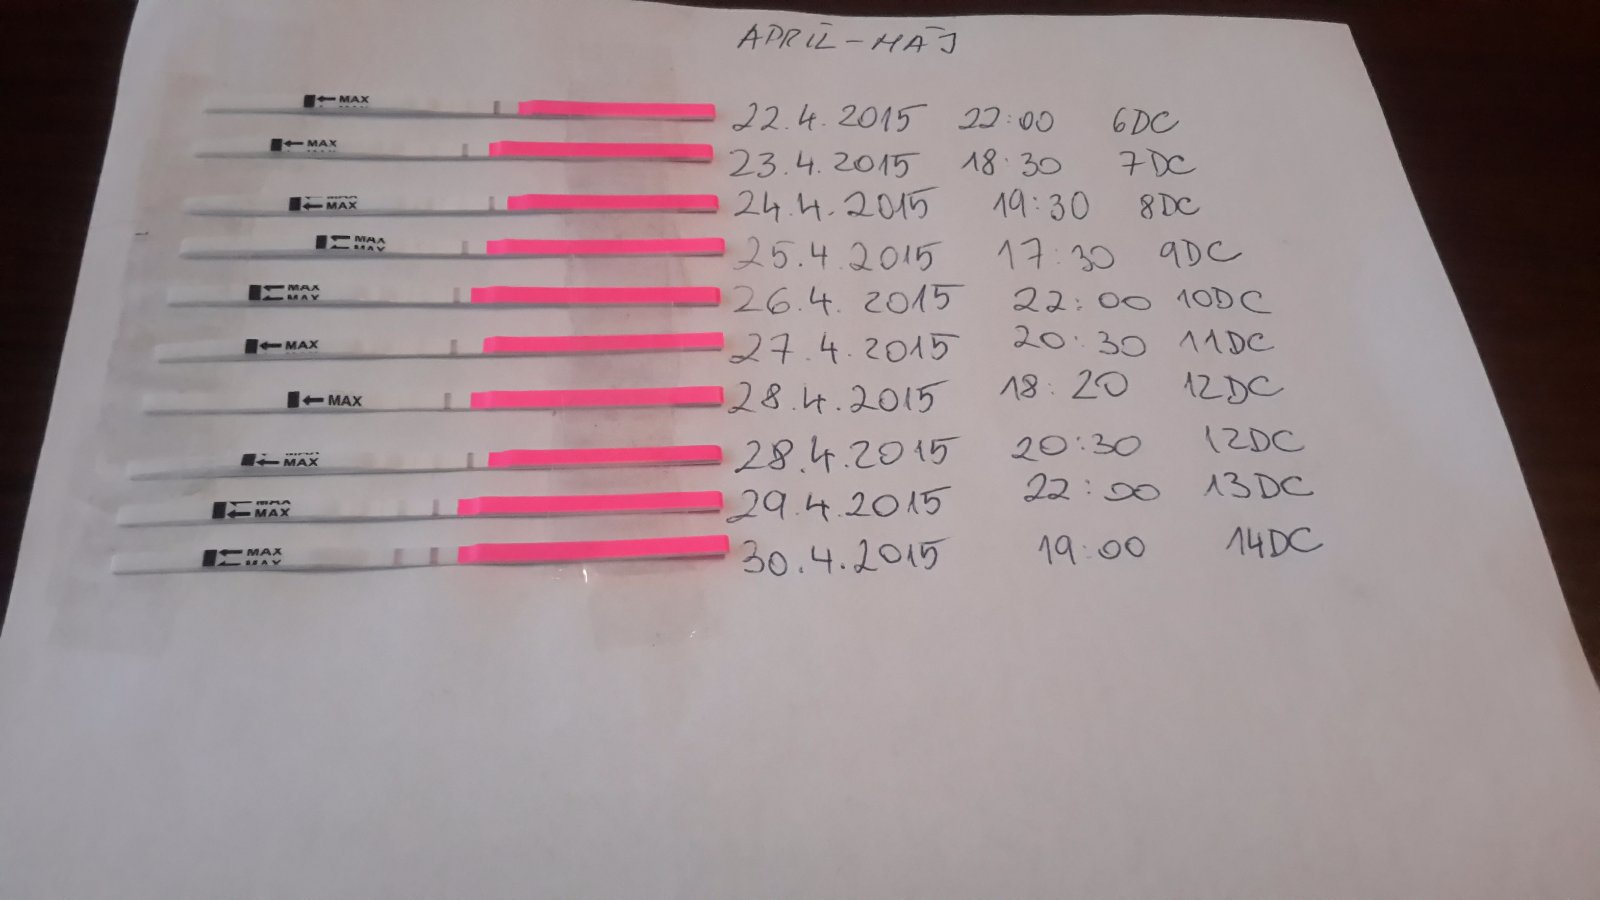 APRÍL - MÁJ
MAX 22.4.2015 22:00 6DC
MAX 23.4.2015 18:30 7DC
MAX 24.4.2015 19:30 8DC
MAX MAX 25.4.2015 17:30 9DC
MAX MAX 26.4.2015 22:00 10DC
MAX 27.4.2015 20:30 11DC
MAX 28.4.2015 18:20 12DC
MAX 28.4.2015 20:30 12DC
MAX 29.4.2015 22:00 13DC
MAX MAX 30.4.2015 19:00 14DC